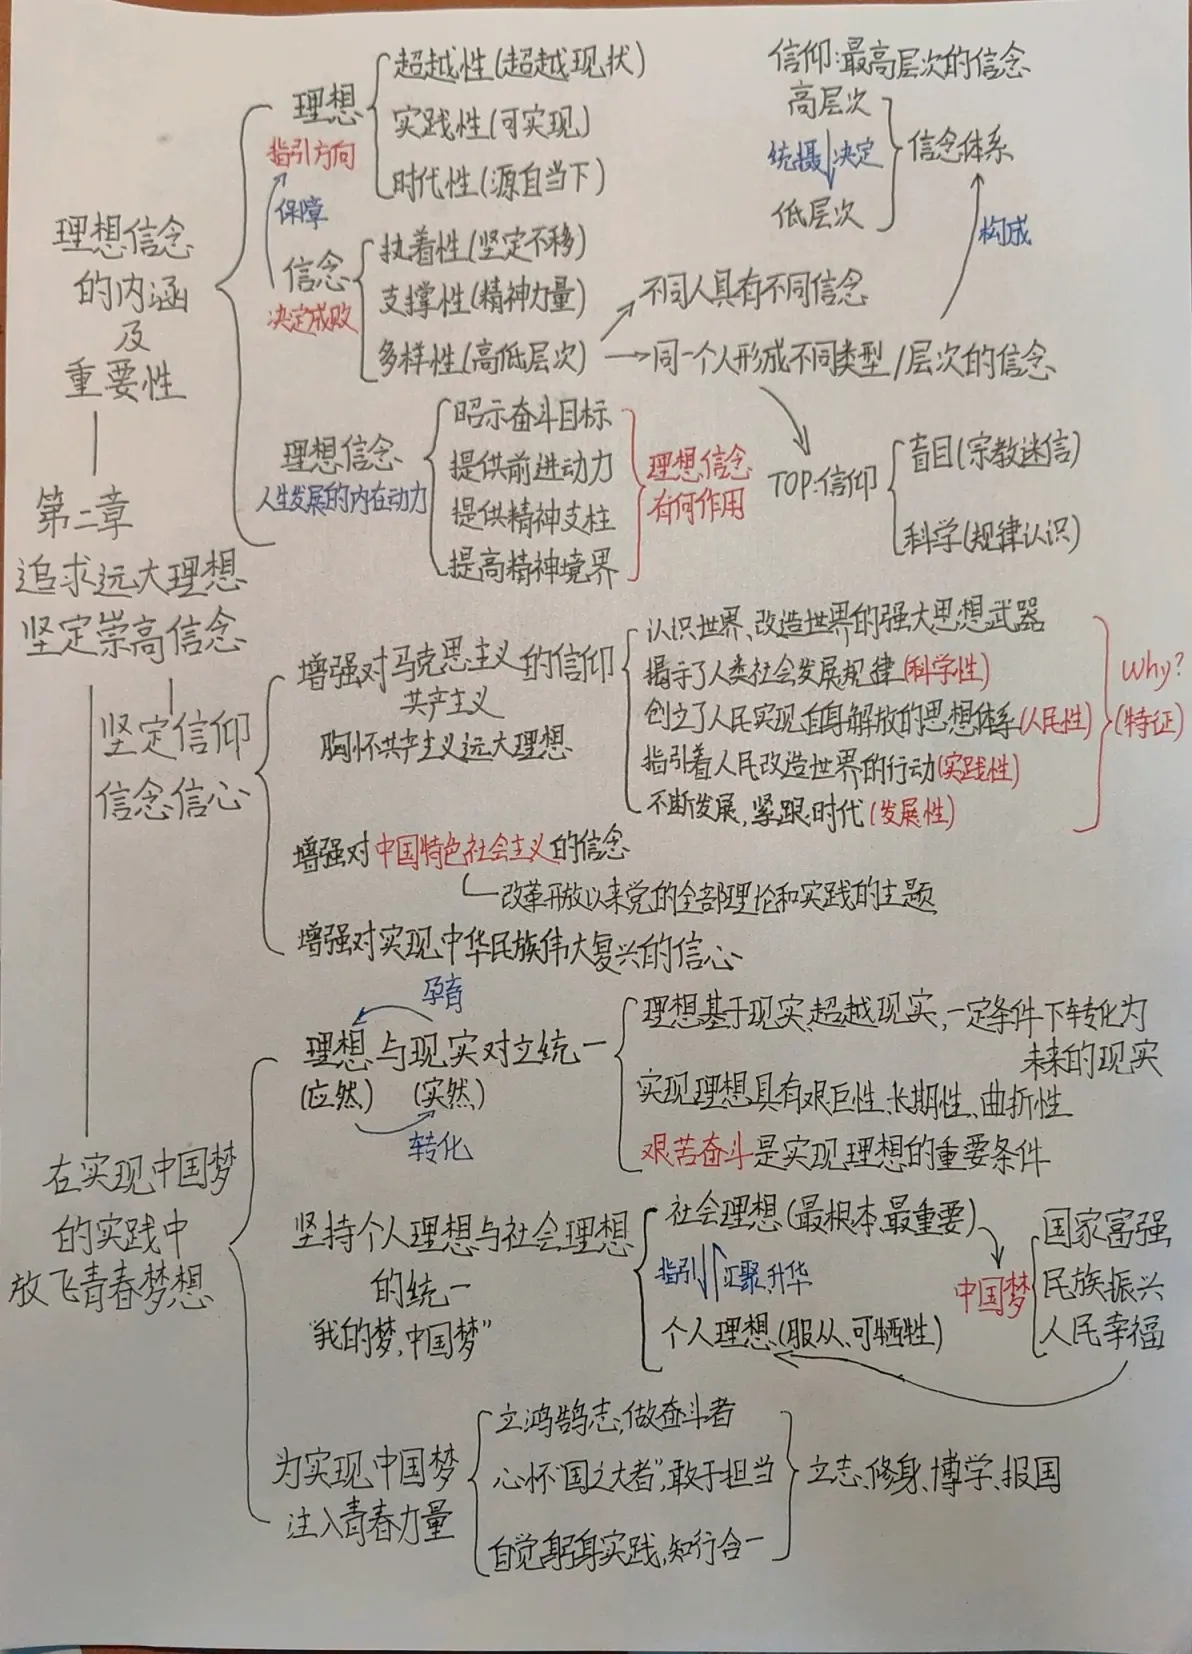 理想
超越性(超越现状)
实践性(可实现)
时代性(源自当下)
指引方向
保障
信仰:最高层次的信念
高层次
统摄 决定
低层次
信念体系
构成
理想信念
的内涵
及
重要性
信念
决定成败
执着性(坚定不移)
支撑性(精神力量)
多样性(高低层次)
不同人具有不同信念
同一个人形成不同类型/层次的信念
理想信念
人生发展的内在动力
昭示奋斗目标
提供前进动力
提供精神支柱
提高精神境界
理想信念
有何作用
TOP:信仰
盲目(宗教迷信)
科学(规律认识)
第二章
追求远大理想
坚定崇高信念
坚定信仰
信念信心
增强对马克思主义的信仰
共产主义
胸怀共产主义远大理想
认识世界、改造世界的强大思想武器
揭示了人类社会发展规律(科学性)
创立了人民实现自身解放的思想体系(人民性)
指引着人民改造世界的行动(实践性)
不断发展,紧跟时代(发展性)
Why?
(特征)
增强对中国特色社会主义的信念
改革开放以来党的全部理论和实践的主题
增强对实现中华民族伟大复兴的信心
在实现中国梦
的实践中
放飞青春梦想
孕育
理想与现实对立统一
(应然) (实然)
转化
理想基于现实、超越现实,一定条件下转化为
未来的现实
实现理想具有艰巨性、长期性、曲折性
艰苦奋斗是实现理想的重要条件
坚持个人理想与社会理想
的统一
“我的梦,中国梦”
社会理想(最根本、最重要)
指引 汇聚、升华
个人理想(服从、可牺牲)
中国梦
国家富强
民族振兴
人民幸福
为实现中国梦
注入青春力量
立鸿鹄志,做奋斗者
心怀“国之大者”,敢于担当
自觉躬身实践,知行合一
立志、修身、博学、报国